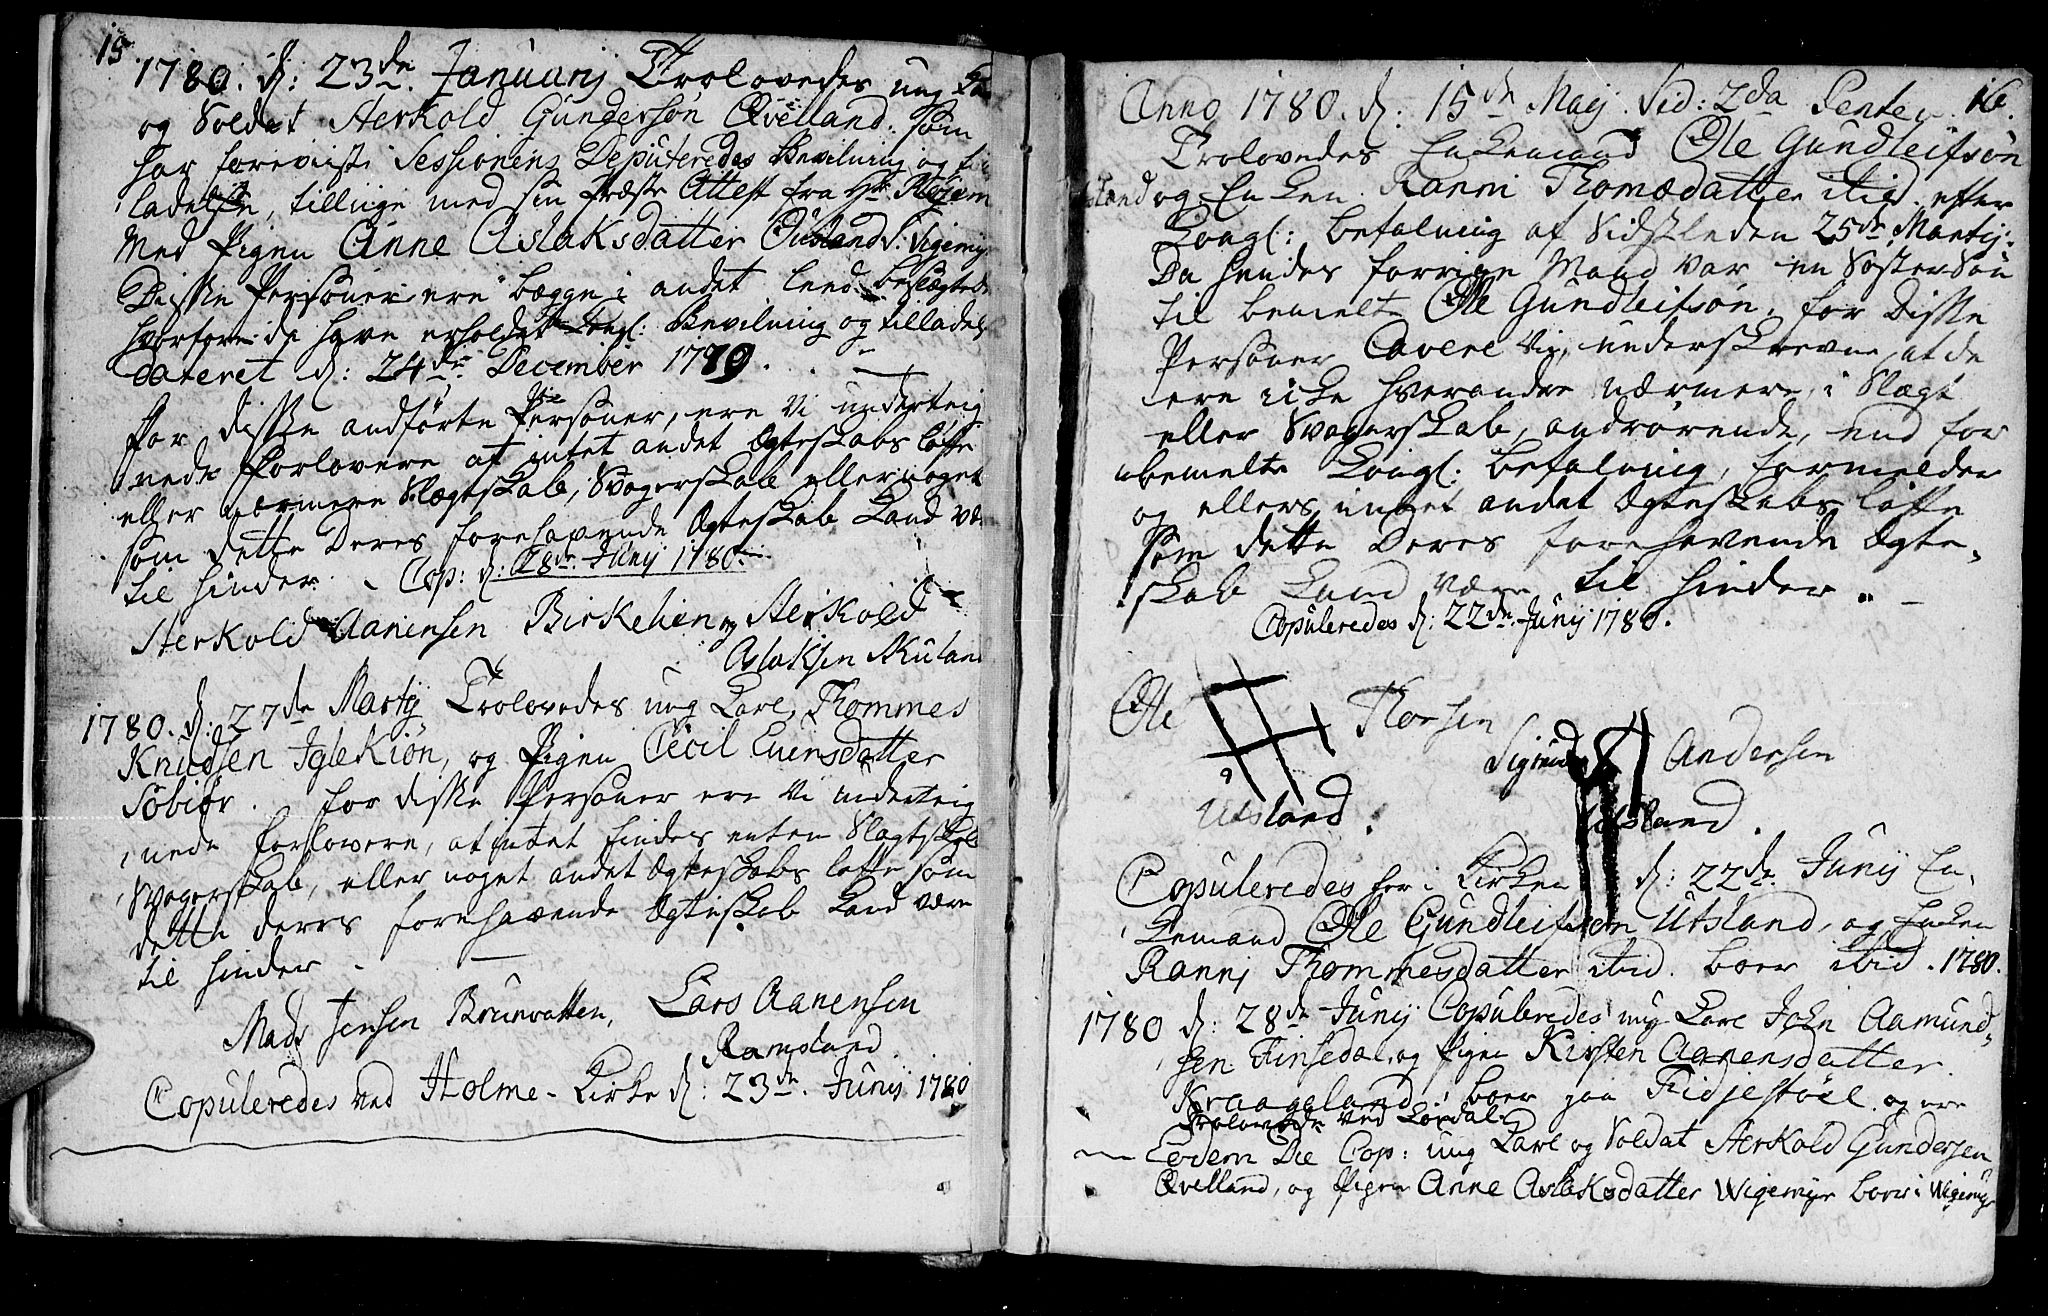 15
1780. d: 23de Januarij Trolovedes ung
og Soldat Aerkold Gundersøn Øvelland. som
har foreviist Sessionens Deputeredes Bevilning og
ladelse, tillige med sin Præstes Attest fra Hr.
med Pigen Anne Aslaksdatter Ousland
Disse Personer ere begge i andet leed beslægtede
hvorfore de have erholdet Kongl: Bevilning og tilladelse
dateret d: 24de December 1779.
For disse anførte Personer, ere Vi underteig-
nede Forlovere at intet andet Ægteskabs løfte
eller nærmere Slægtskab, Svogerskab eller noget
som dette Deres forehavende Ægteskab Kand være
til hinder. Cop: d: 28de Junij 1780.
Aerkold Aanensen Birkelien og Aerkold
Aslaksen Skuland
1780. d: 27de Martij Trolovedes ung Karl Thommes
Knudsen Iglekiøn, og Pigen Cecil Evensdatter
Søbiør. For disse Personer ere Vi underteig
nede Forlovere, at intet findes enten Slægtskab
Svogerskab, eller noget andet Ægteskabs løfte som
dette deres forehavende Ægteskab Kand være
til hinder.
Mads Jensen Brunvatten, Lars Aanensen
Ramsland
Copuleredes ved Holme-Kirke d: 23de Junij 1780
16.
Anno 1780. d: 15de Maij Fid: 2da Pentec.
Trolovedes Enkemand Ole Gundleifsøn
og Enken Ranni Thomædatter ibid. efter
Kongl: befalning af Sidstleden 25de Martij.
Da hendes forrige Mand var en Søster Søn
til bemelte Ole Gundleifsøn. for Disse
Personer Cavere Vi underskrevne, at de
ere icke hverandre nærmere i Slægt
eller Svogerskab, andrørende, end for
bemelte Kongl: befalning, formelder
og ellers intet andet Ægteskabs løfte
som dette Deres forehavende Ægte-
skab Kand være til hinder.
Copuleredes d: 22de Junij 1780.
Ole Thorsen
Utsland.
Sigrud Andersen
Utsland.
Copuleredes her i Kirken d: 22de Junij En-
kemand Ole Gundleifsøn Utsland, og Enken
Rannj Thommesdatter ibid. boer ibid. 1780.
1780 d: 28de Junij Copuleredes ung Karl John Aamund-
sen Finsedal, og Pigen Kirsten Aanensdatter
Kraageland, boer paa Fidjestøel. og ere
Trolovede ved Løvdal.
Eodem Die Cop: ung Karl og Soldat Aerkold Gundersen
Øvelland, og Pigen Anne Aslaksdatter Wigemyr boer i Wigemyr